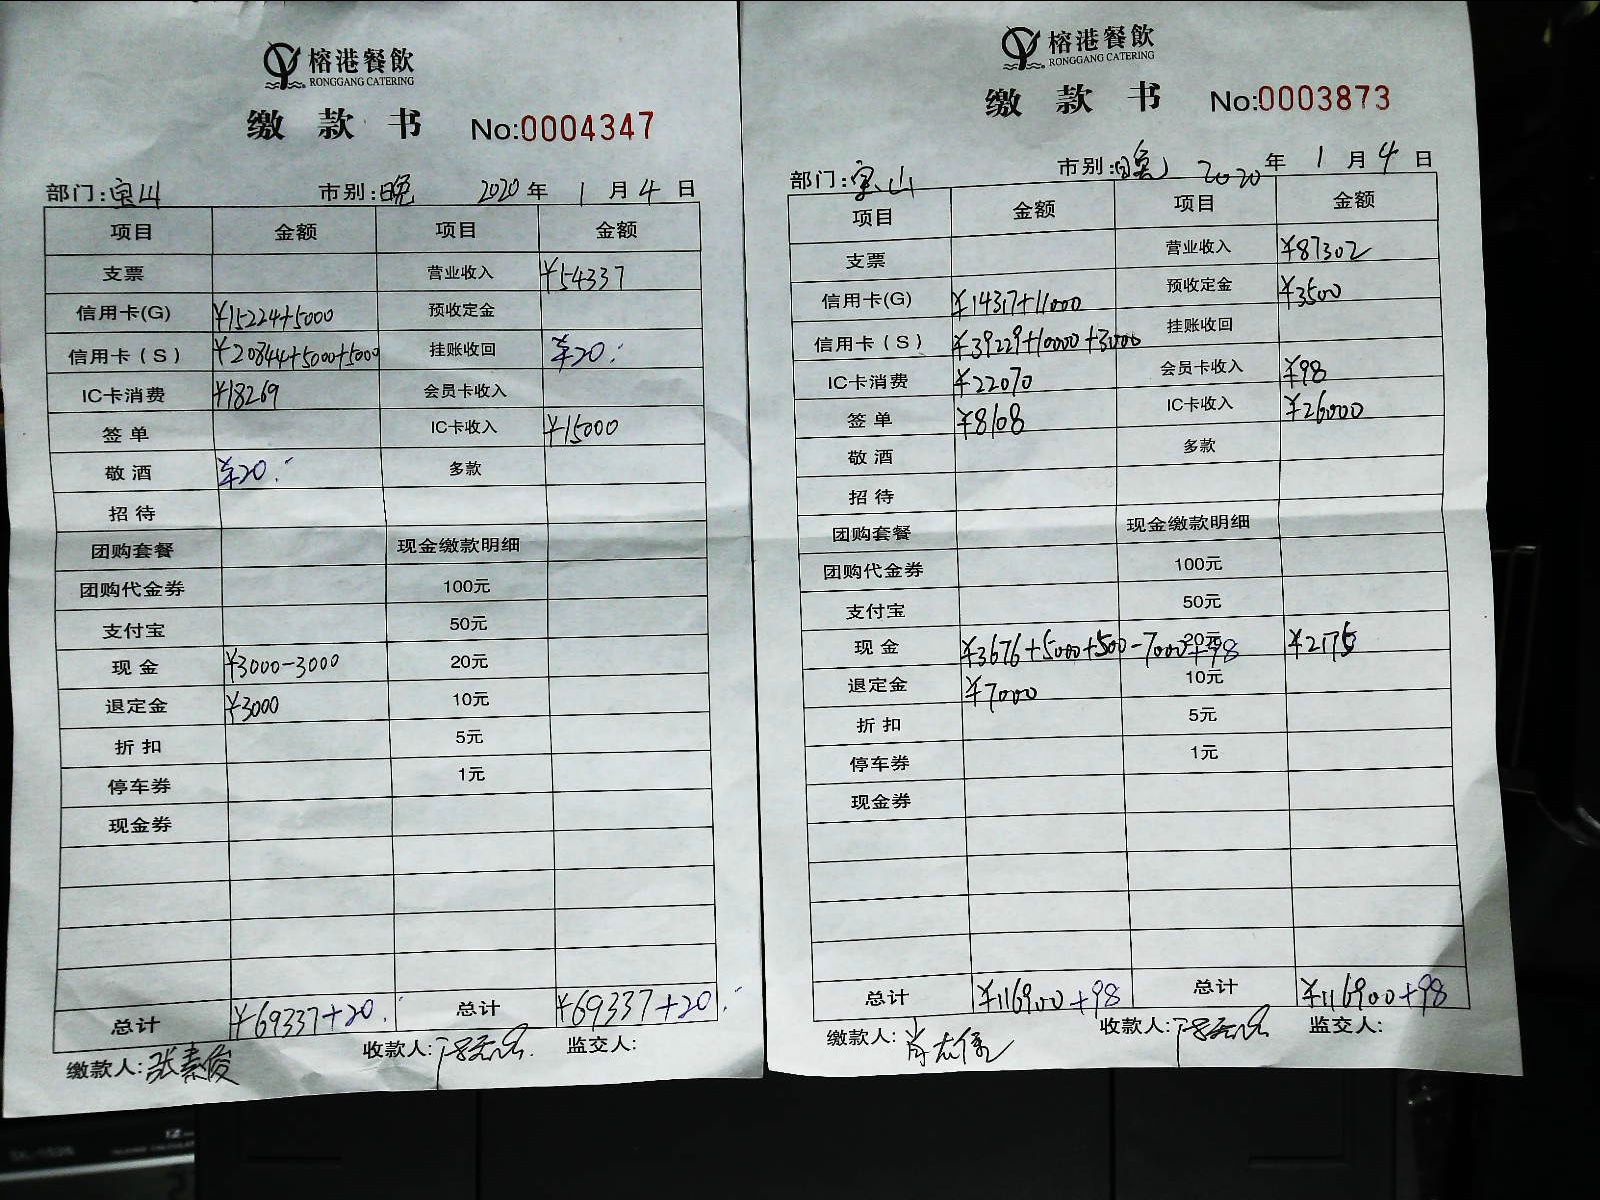 榕港餐飲
RONGGANG CATERING
缴款书 No:0004347
部门:宝山 市别:晚 2020年1月4日
项目 金额 项目 金额
支票 营业收入 ¥54337
信用卡(G) ¥15224+5000 预收定金
信用卡(S) ¥20844+5000+5000 挂账收回 ¥20.-
IC卡消费 ¥18269 会员卡收入
签单 IC卡收入 ¥15000
敬酒 ¥20.- 多款
招待
团购套餐 现金缴款明细
团购代金券 100元
支付宝 50元
现金 ¥3000-3000 20元
退定金 ¥3000 10元
折扣 5元
停车券 1元
现金券
总计 ¥69337+20.- 总计 ¥69337+20.-
缴款人:张素俊 收款人: 监交人:
榕港餐飲
RONGGANG CATERING
缴款书 No:0003873
部门:宝山 市别: 2020年1月4日
项目 金额 项目 金额
支票 营业收入 ¥87302
信用卡(G) ¥14317+11000 预收定金 ¥3500
信用卡(S) ¥39229+10000+3000 挂账收回
IC卡消费 ¥22070 会员卡收入 ¥98
签单 ¥8108 IC卡收入 ¥26000
敬酒 多款
招待
团购套餐 现金缴款明细
团购代金券 100元
支付宝 50元
现金 ¥3676+5000+500-7000+98 20元 ¥2175
退定金 ¥7000 10元
折扣 5元
停车券 1元
现金券
总计 ¥116900+98 总计 ¥116900+98
缴款人: 收款人: 监交人: